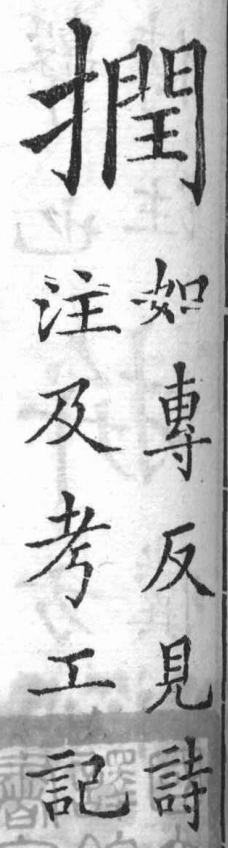 撋
如專反見詩
注及考工記